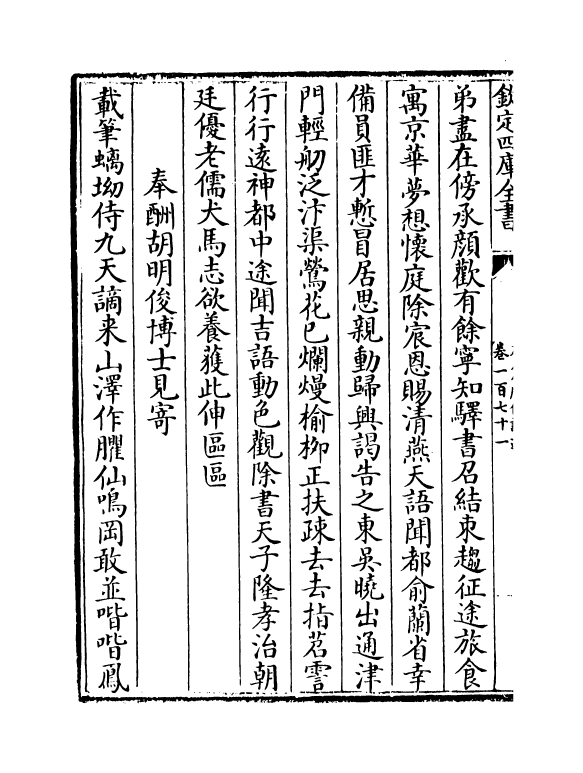 欽定四庫全書
卷一百七十一
弟盡在傍承顔歡有餘寧知驛書召結束趨征途旅食
寓京華夢想懷庭除宸恩賜清燕天語聞都俞蘭省幸
備員匪才慙冒居思親動歸興謁告之東吳曉出通津
門輕舠泛汴渠鶯花已爛熳榆栁正扶疎去去指苕霅
行行遠神都中途聞吉語動色觀除書天子隆孝治朝
廷優老儒犬馬志欲養獲此伸區區
奉酬胡明俊博士見寄
載筆螭坳侍九天謫来山澤作臞仙鳴岡敢並喈喈鳳